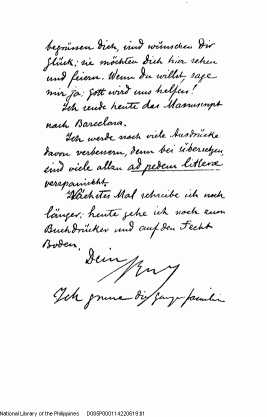 begrüssen dich, und wünschen Dir
Glück; sie möchten Dich hier sehen
und feiern. Wenn du willst, sage
mir ja; Gott wird uns helfen!
Ich sende heute das Manuscript
nach Barcelona.
Ich werde noch viele Ausdrücke
davon verbessern, denn bei
sind viele allen ad pedem litterae
verspanischt.
Nächstes Mal schreibe ich noch
länger; heute gehe ich noch zum
Buchdrücker und auf den Fecht
Boden.
Dein
Ich die ganze Familie
National Library of the Philippines